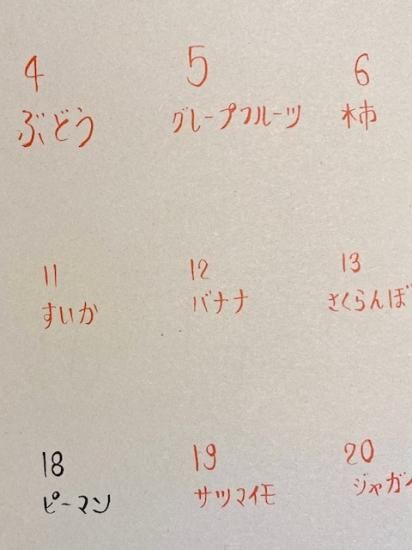 4 5 6
ぶどう グレープフルーツ 柿
11 12 13
すいか バナナ さくらんぼ
18 19 20
ピーマン サツマイモ ジャガイ